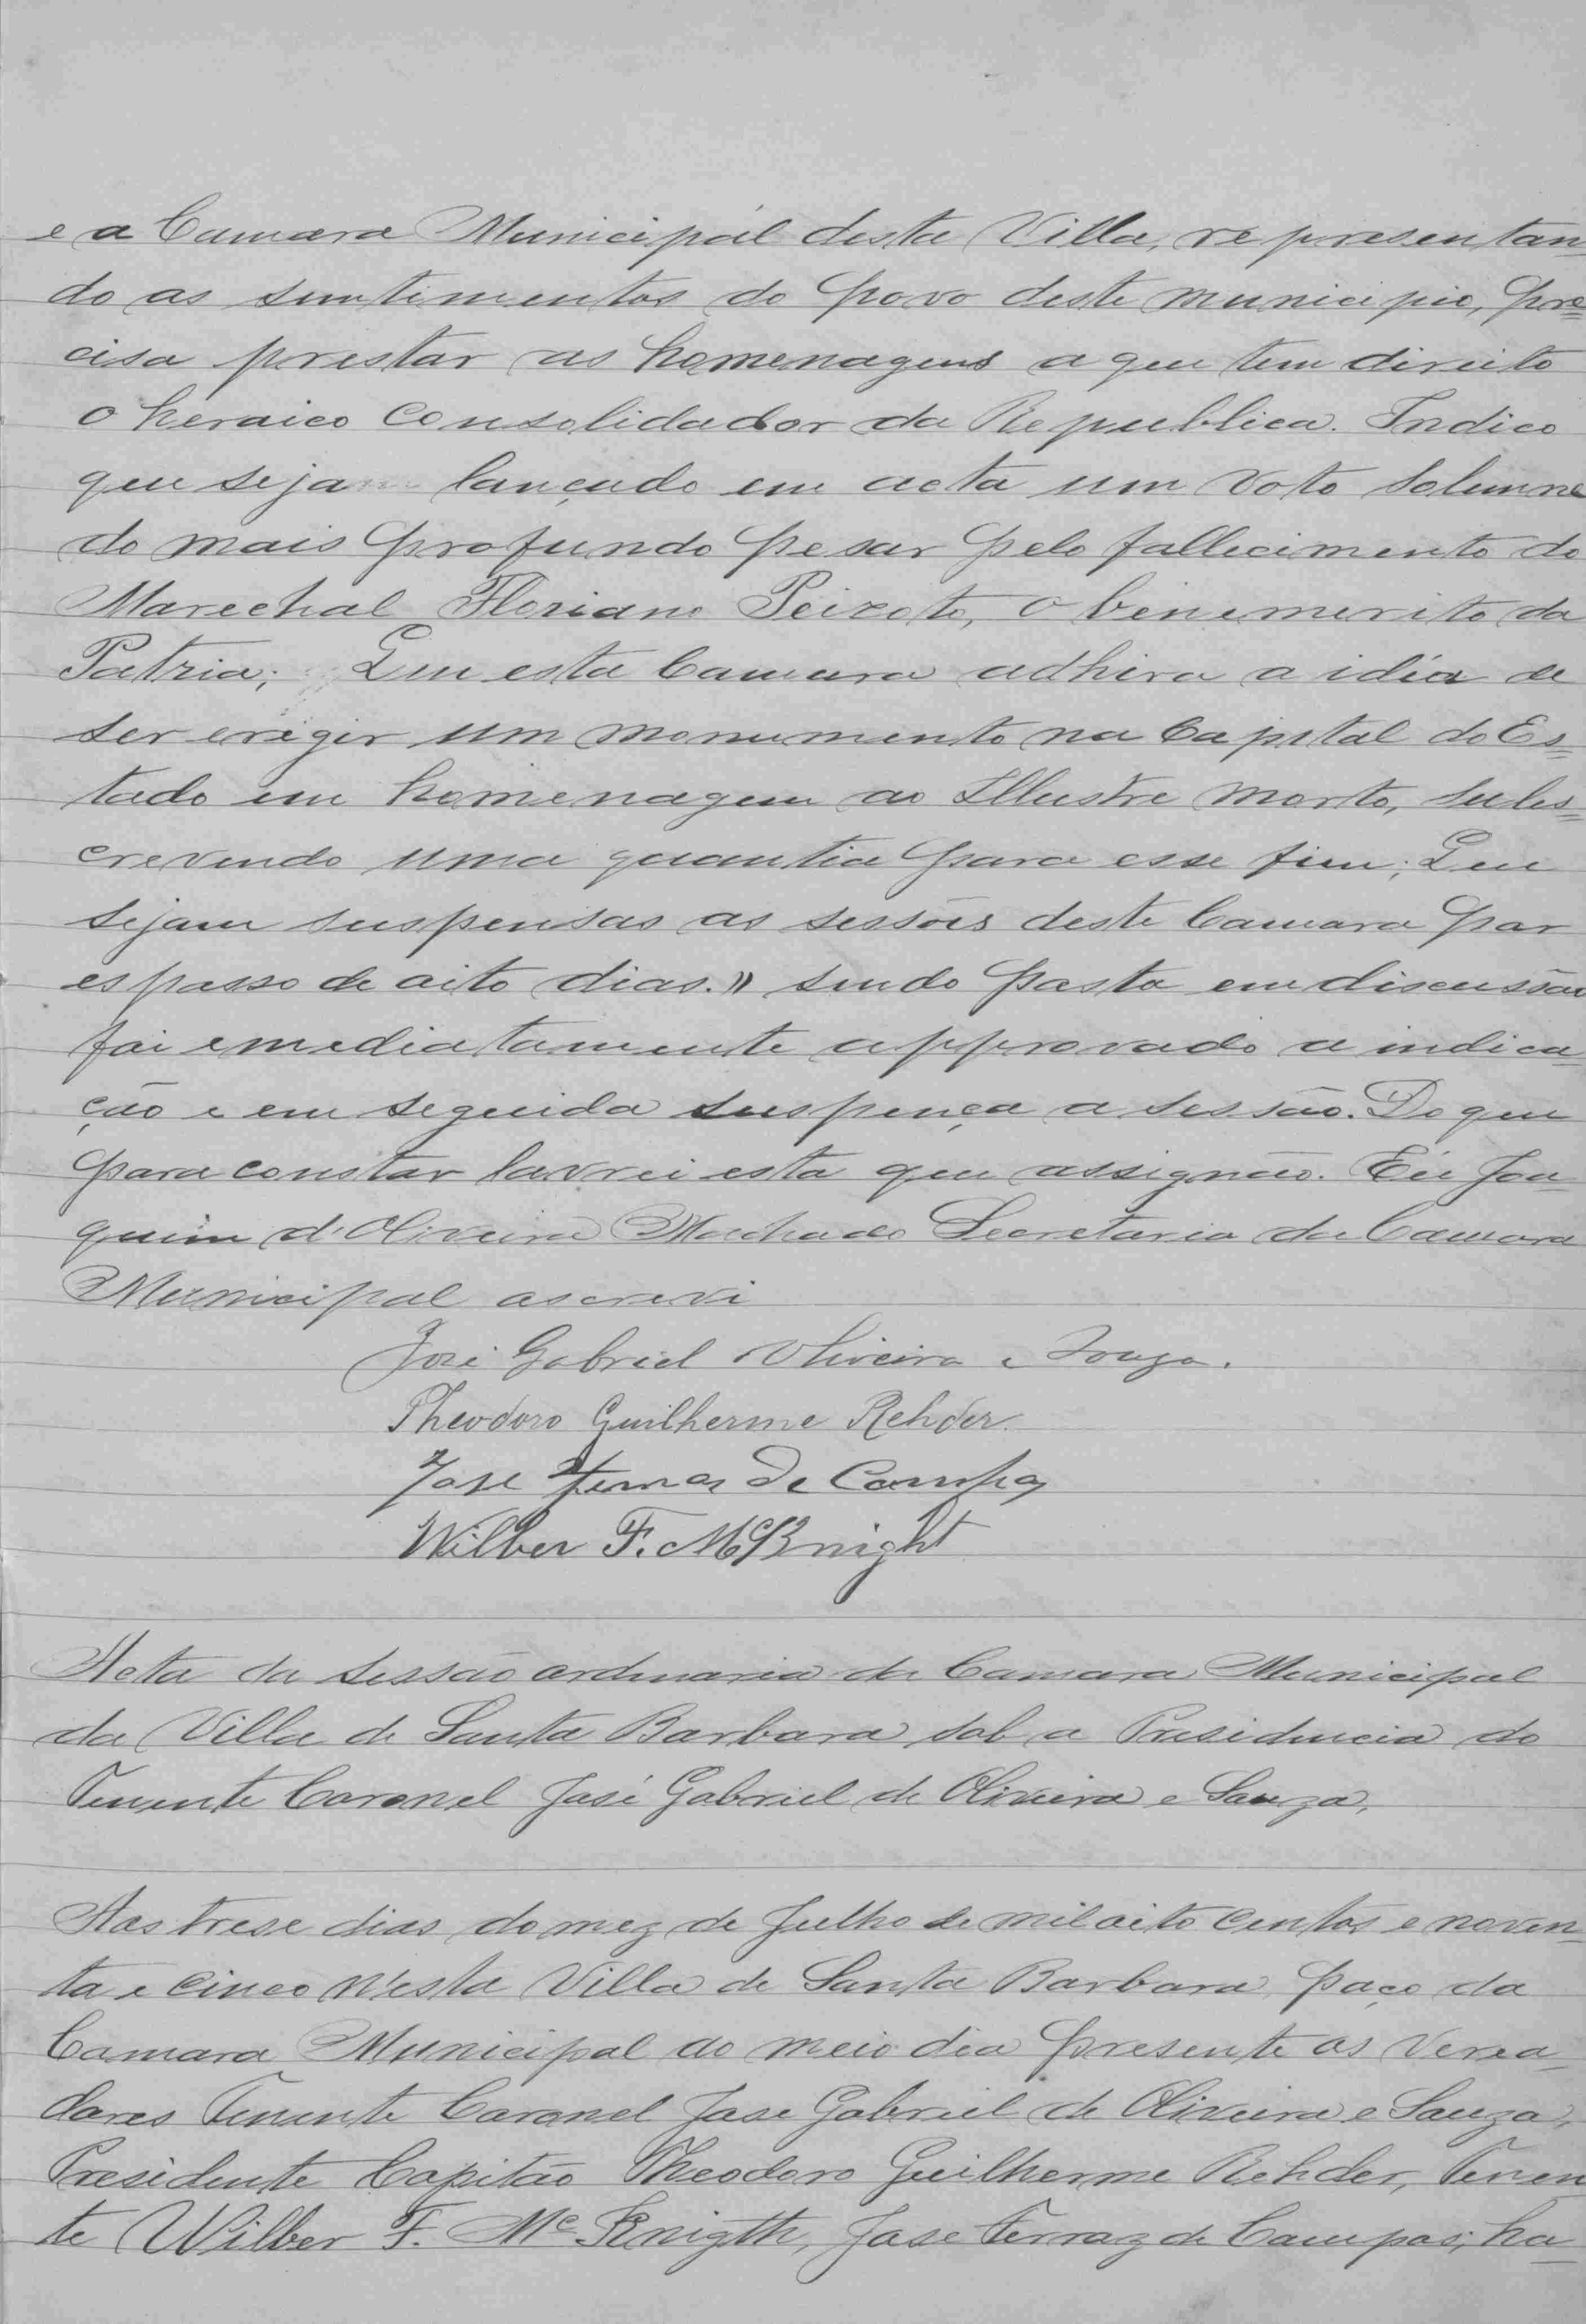 e a Camara Municipal desta Villa, representan
do as sentimentos do povo deste municipio, pre=
cisa prestar as homenagens a que tem direito
o heroico Consolidador da Republica. Indico
que seja lançado em acta um voto solemne
do mais profundo pesar pelo fallecimento do
Marechal Floriano Peixoto, o benemerito da
Patria; Que esta Camara adhira a idéa de
ser erigir um monumento na Capital do Es=
tado em homenagem ao Illustre morto, subs=
crevendo uma quantia para esse fim; Que
sejam suspensas as sessões deste Camara por
espasso de oito dias.» sendo posta em discussão
foi emediatamente approvado a indica=
ção e em seguida suspença a sessão. Do que
para constar lavrei esta que assignão. Eu Joa
quim d'Oliveira Machado Secretario da Camara
Municipal escrevi
José Gabriel Oliveira e Souza.
Theodoro Guilherme Rehder.
Jose Ferras de Campos
Wilber F. McKnight
Acta da sessão ordinaria da Camara Municipal
da Villa de Santa Barbara sob a Presidencia do
Tenente Coronel José Gabriel de Oliveira e Souza,
Aos trese dias do mez de Julho de mil oito centos e noven
ta e cinco n'esta Villa de Santa Barbara, paço da
Camara Municipal ao meio dia presente os verea
dores Tenente Coronel Jose Gabriel de Oliveira e Souza,
Presidente Capitão Theodoro Guilherme Rehder, Tenen
te Wilber F. Mc Knigth, Jose Ferraz de Campos; ha=